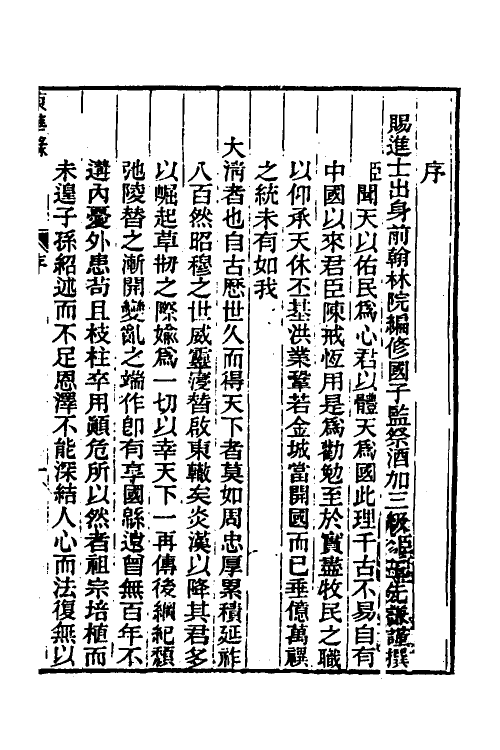 序
賜進士出身前翰林院編修國子監祭酒加三級臣王先謙謹撰
臣聞天以佑民爲心君以體天爲國此理千古不易自有
中國以來君臣陳戒恆用是爲勸勉至於實盡牧民之職
以仰承天休丕基洪業鞏若金城當開國而已垂億萬禩
之統未有如我
大淸者也自古歷世久而得天下者莫如周忠厚累積延祚
八百然昭穆之世威靈寖替啟東轍矣炎漢以降其君多
以崛起草剏之際婾爲一切以幸天下一再傳後綱紀頹
弛陵替之漸開變亂之端作卽有享國緜遠曾無百年不
遘內憂外患苟且枝柱卒用顚危所以然者祖宗培植而
未遑子孫紹述而不足恩澤不能深結人心而法復無以
東華錄
序
一